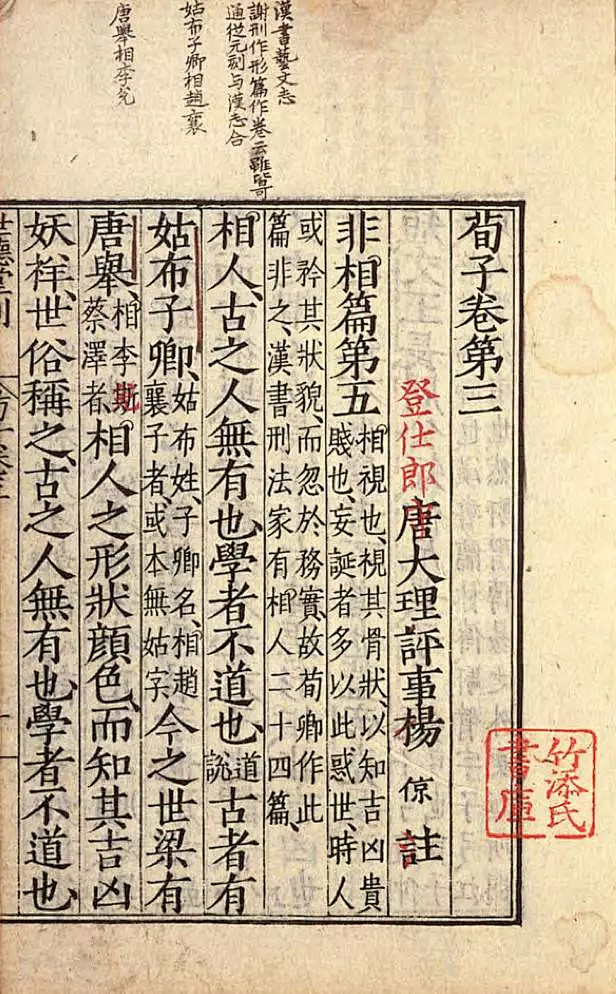 漢書藝文志
謝刑作形篇作卷云雖皆
通從元刻与漢志合
姑布子卿相趙襄
唐舉相李兌
荀子卷第三
登仕郎
唐大理評事楊倞註
非相篇第五
相視也、視其骨狀、以知吉凶貴
賤也、妄誕者多以此惑世、時人
或矜其狀貌、而忽於務實、故荀卿作此
篇非之、漢書刑法家有相人二十四篇、
相人、古之人無有也、學者不道也、
道
說
古者有
姑布子卿、
姑布姓、子卿名、相趙
襄子者、或本無姑字
今之世梁有
唐舉、
相李斯
蔡澤者、
相人之形狀顏色、而知其吉凶
妖祥、世俗稱之、古之人無有也、學者不道也、
世德堂刊
竹添氏
書庫